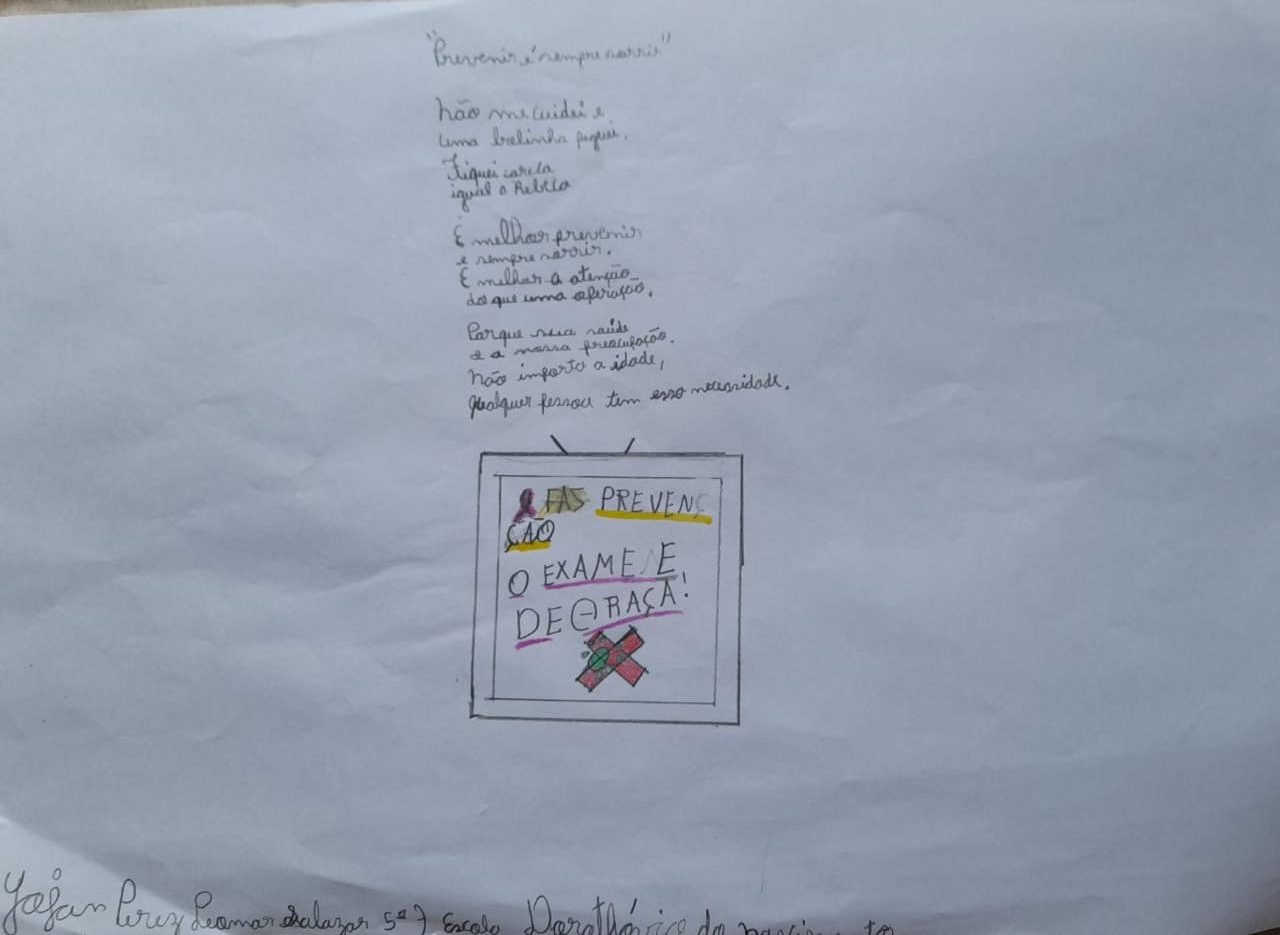 "Prevenir é sempre sorrir"
Não me cuidei e
uma bolinha peguei.
Fiquei careca
igual a Rebeca
É melhor prevenir
e sempre sorrir.
É melhor a atenção
do que uma operação.
Porque sua saúde
é a nossa preocupação.
Não importa a idade,
qualquer pessoa tem essa necessidade.
FAS PREVENÇ
ÇÃO
O EXAME E
DE GRAÇA!
Perez Leomar Salazar 5º Escola do nascimento